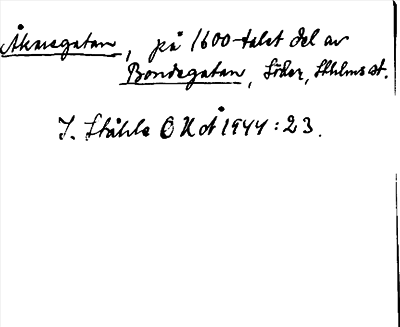 Åkaregatan, på 1600-talet del av
Bondegatan, Söder, Sthlms st.
I. Ståhle OUÅ 1944:23.